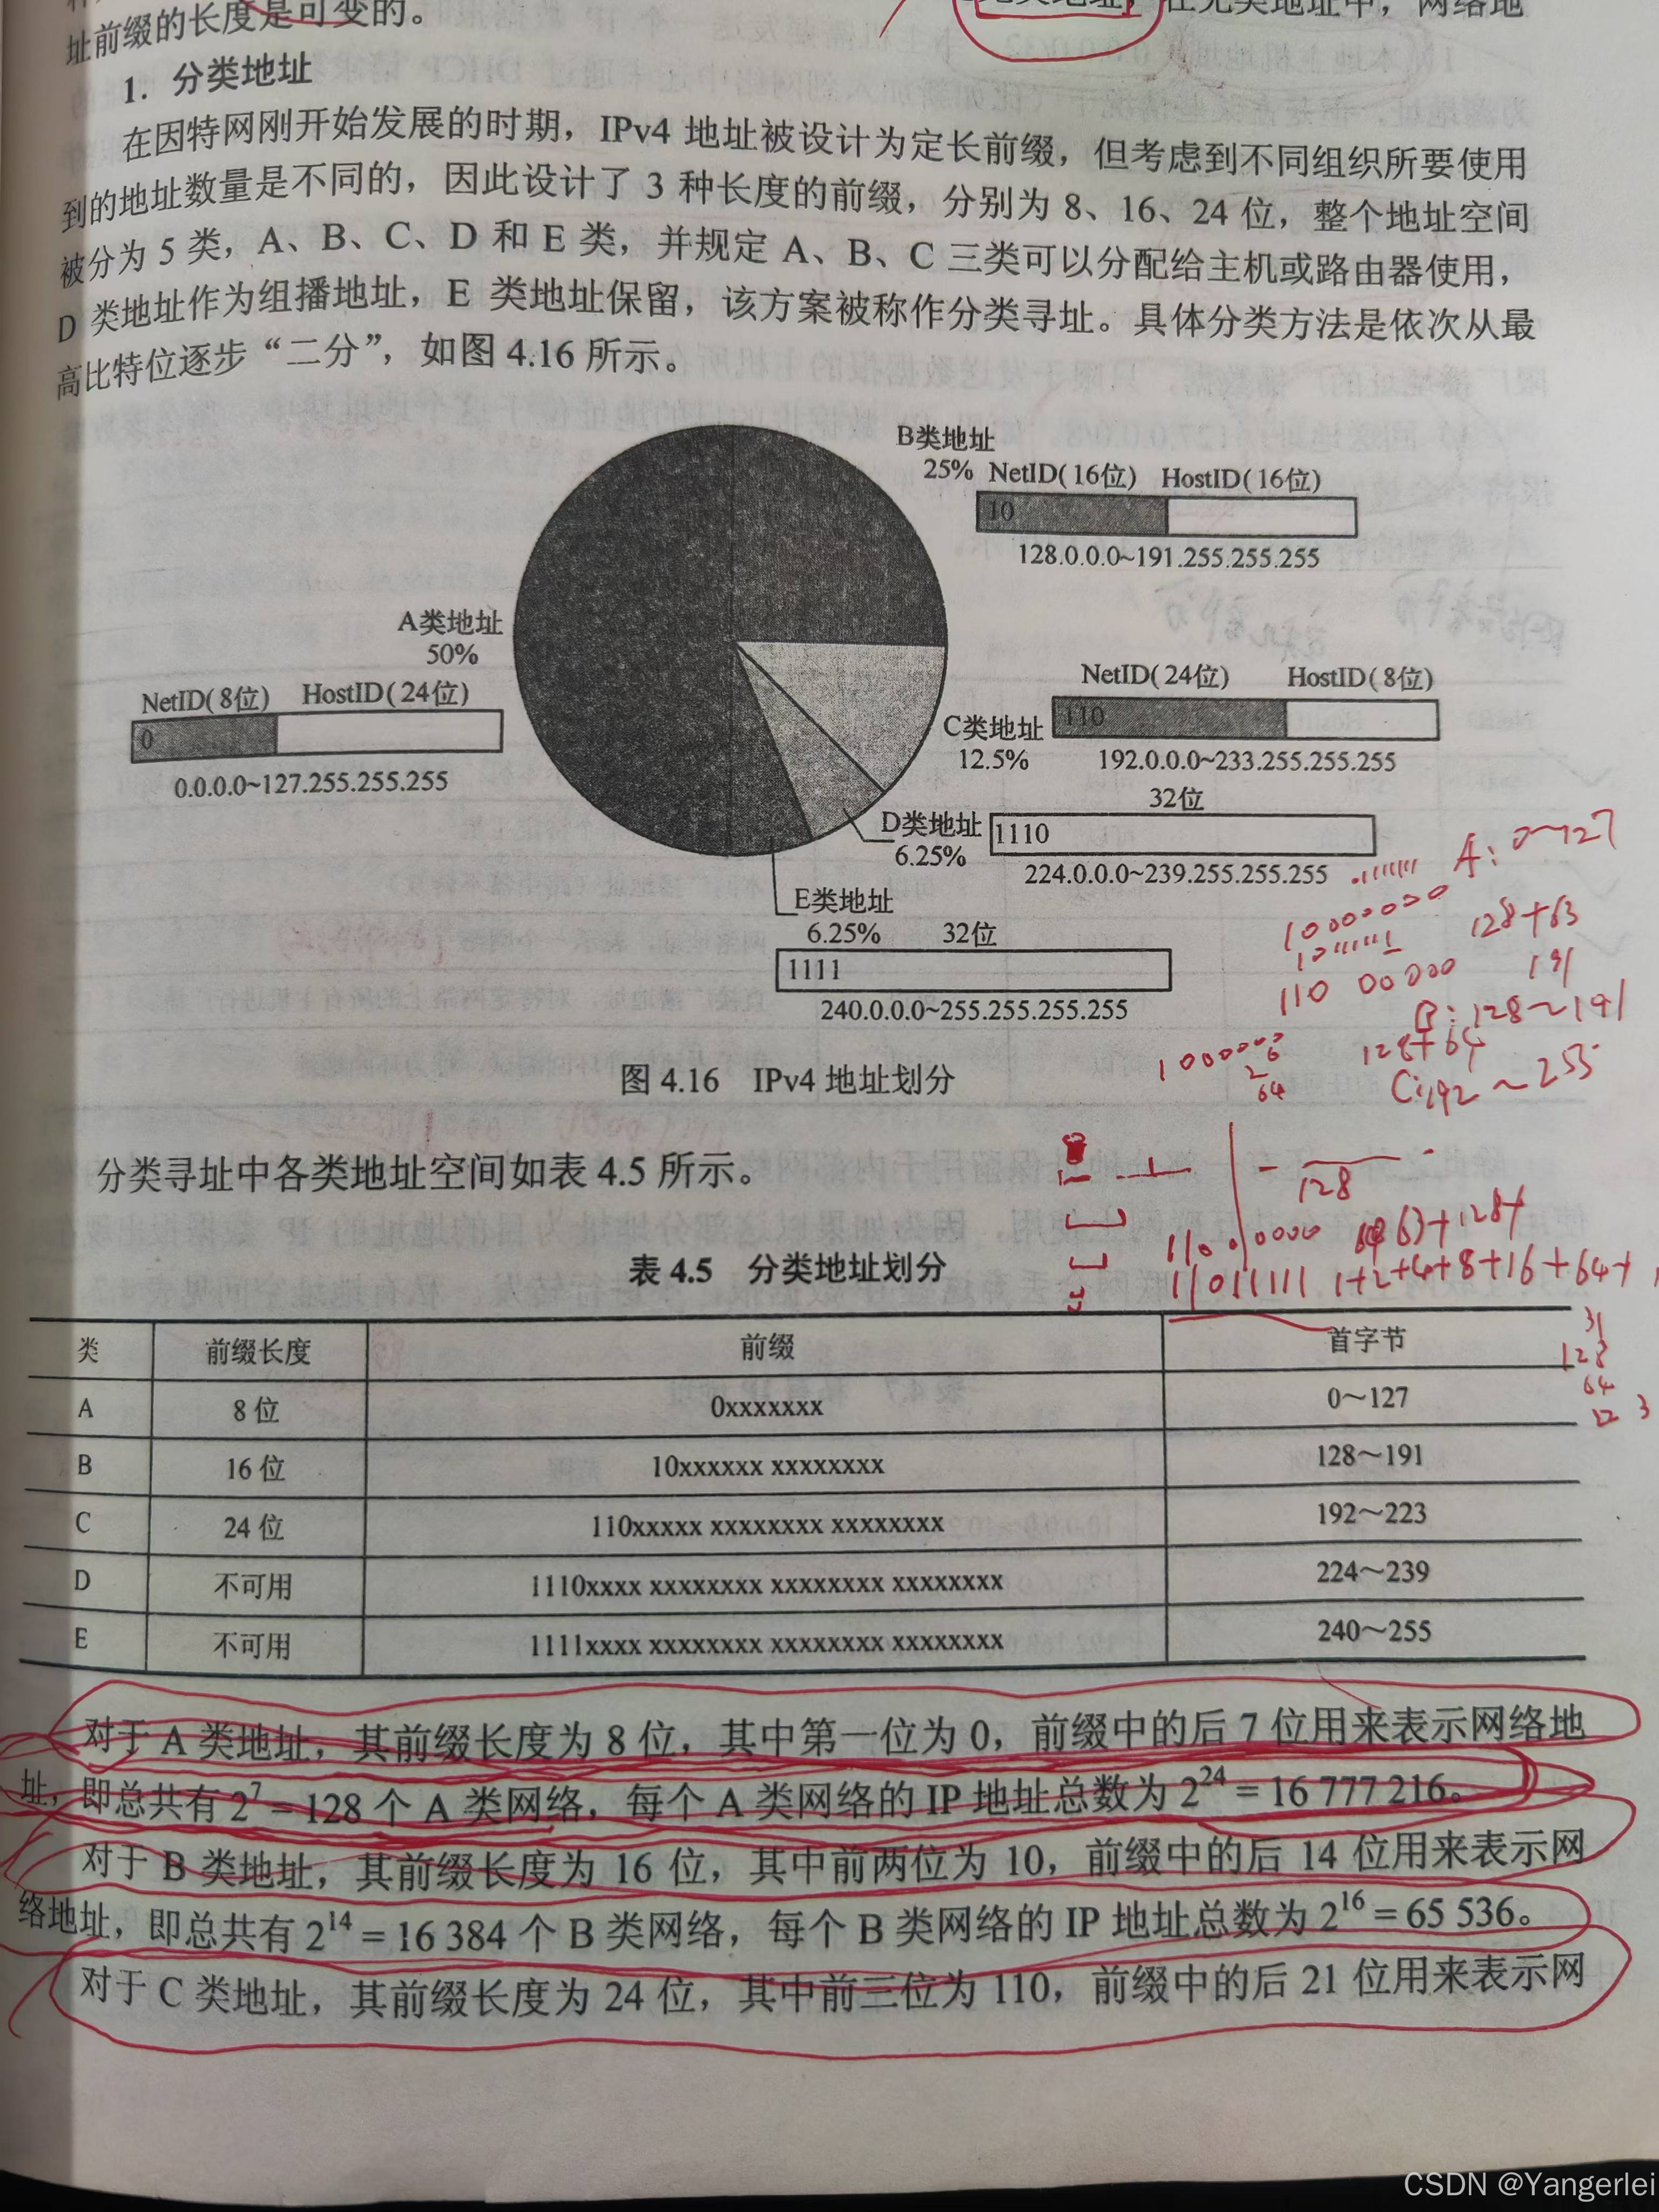 址前缀的长度是可变的。
在无类地址中，网络地
1. 分类地址
在因特网刚开始发展的时期，IPv4 地址被设计为定长前缀，但考虑到不同组织所要使用
到的地址数量是不同的，因此设计了 3 种长度的前缀，分别为 8、16、24 位，整个地址空间
被分为 5 类，A、B、C、D 和 E 类，并规定 A、B、C 三类可以分配给主机或路由器使用，
D 类地址作为组播地址，E 类地址保留，该方案被称作分类寻址。具体分类方法是依次从最
高比特位逐步“二分”，如图 4.16 所示。
B类地址
25%
NetID(16位) HostID(16位)
10
128.0.0.0~191.255.255.255
A类地址
50%
NetID(8位) HostID(24位)
0
0.0.0.0~127.255.255.255
NetID(24位) HostID(8位)
C类地址
12.5%
110
192.0.0.0~233.255.255.255
32位
D类地址
6.25%
1110
224.0.0.0~239.255.255.255
E类地址
6.25%
32位
1111
240.0.0.0~255.255.255.255
A: 0~127
10000000
128+63
191
110 00000
B: 128~191
128+64
64
C: 192~255
图 4.16 IPv4 地址划分
分类寻址中各类地址空间如表 4.5 所示。
128
11011111 1+2+4+8+16+64+
表 4.5 分类地址划分
31
128
64
类 前缀长度 前缀 首字节
A 8 位 0xxxxxxx 0～127
B 16 位 10xxxxxx xxxxxxxx 128～191
C 24 位 110xxxxx xxxxxxxx xxxxxxxx 192～223
D 不可用 1110xxxx xxxxxxxx xxxxxxxx xxxxxxxx 224～239
E 不可用 1111xxxx xxxxxxxx xxxxxxxx xxxxxxxx 240～255
对于 A 类地址，其前缀长度为 8 位，其中第一位为 0，前缀中的后 7 位用来表示网络地
址，即总共有 2⁷ = 128 个 A 类网络，每个 A 类网络的 IP 地址总数为 2²⁴ = 16 777 216。
对于 B 类地址，其前缀长度为 16 位，其中前两位为 10，前缀中的后 14 位用来表示网
络地址，即总共有 2¹⁴ = 16 384 个 B 类网络，每个 B 类网络的 IP 地址总数为 2¹⁶ = 65 536。
对于 C 类地址，其前缀长度为 24 位，其中前三位为 110，前缀中的后 21 位用来表示网
CSDN @Yangerlei